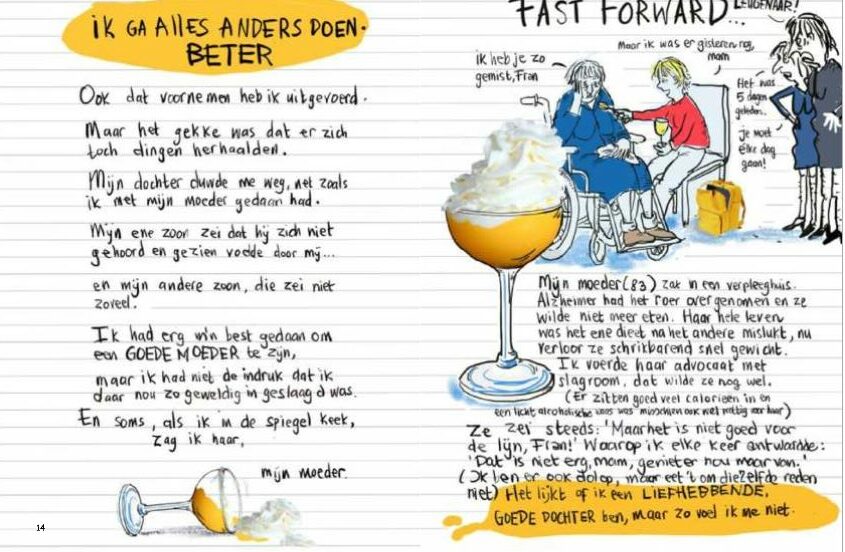 iK GA ALLES ANDERS DOEN.
BETER
Ook dat voornemen heb ik uitgevoerd.
Maar het gekke was dat er zich
toch dingen herhaalden.
Mijn dochter duwde me weg, net zoals
ik met mijn moeder gedaan had.
Mijn ene zoon zei dat hij zich niet
gehoord en gezien voelde door mij...
en mijn andere zoon, die zei niet
zoveel.
Ik had erg mijn best gedaan om
een GOEDE MOEDER te zijn,
maar ik had niet de indruk dat ik
daar nou zo geweldig in geslaagd was.
En soms, als ik in de spiegel keek,
zag ik haar,
mijn moeder.
14
FAST FORWARD...
LEUGENAAR!
ik heb je zo
gemist, Fran
Maar ik was er gisteren nog,
mam
Het was
5 dagen
geleden.
je moet
elke dag
gaan!
Mijn moeder (83) zat in een verpleeghuis.
Alzheimer had het roer overgenomen en ze
wilde niet meer eten. Haar hele leven
was het ene dieet na het andere mislukt, nu
verloor ze schrikbarend snel gewicht.
Ik voerde haar advocaat met
slagroom, dat wilde ze nog wel.
(Er zitten goed veel calorieën in en
een licht alcoholische waas was misschien ook wel nuttig voor haar)
Ze zei steeds: 'Maar het is niet goed voor
de lijn, Fran!' Waarop ik elke keer antwoordde:
'Dat is niet erg, mam, geniet er nou maar van.'
(Ik ben er ook dol op, maar eet 't om diezelfde reden
niet) Het lijkt of ik een LIEFHEBBENDE,
GOEDE DOCHTER ben, maar zo voel ik me niet.